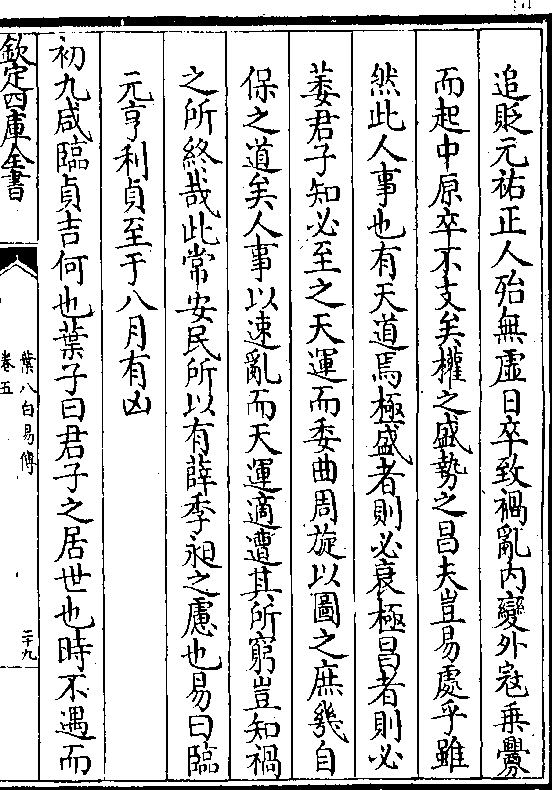 追貶元祐正人殆無虛日卒致禍亂内變外冦乗釁
而起中原卒不支矣權之盛勢之昌夫豈易處乎雖
然此人事也有天道焉極盛者則必衰極昌者則必
萎君子知必至之天運而委曲周旋以圖之庶幾自
保之道矣人事以速亂而天運適遭其所窮豈知禍
之所終哉此常安民所以有薛季昶之慮也易曰臨
元亨利貞至于八月有凶
初九咸臨貞吉何也葉子曰君子之居世也時不遇而
欽定四庫全書
葉八白易傳
卷五
二十九